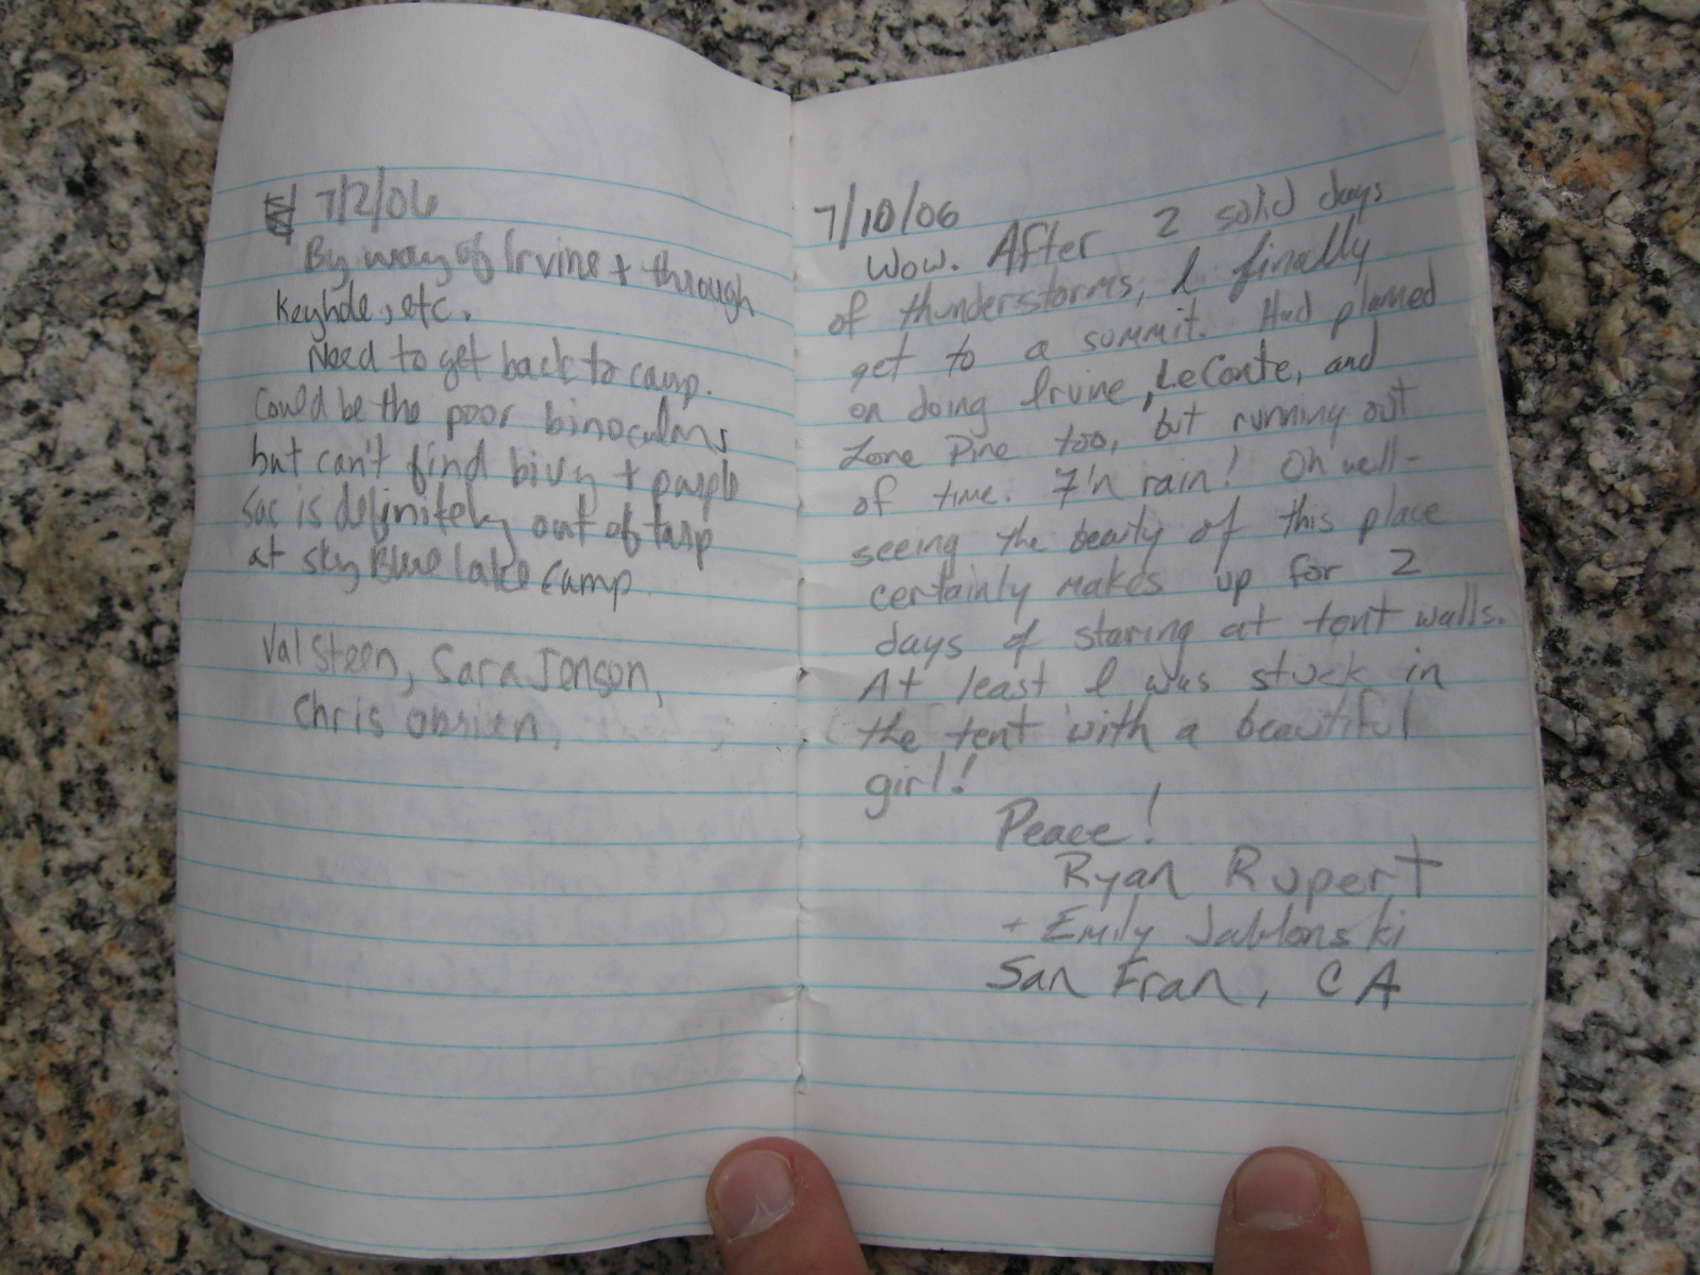 7/2/06
By way of Irvine + through
Keyhole, etc.
Need to get back to camp.
Could be the poor binoculars
but can't find bivy + purple
sac is definitely out of tarp
at Sky Blue lake camp
Val Steen, Sara Jonson,
Chris Obrien,
7/10/06
Wow. After 2 solid days
of thunderstorms, I finally
get to a summit. Had planned
on doing Irvine, LeConte, and
Lone Pine too, but running out
of time. F'n rain! Oh well-
seeing the beauty of this place
certainly makes up for 2
days of staring at tent walls.
At least I was stuck in
the tent with a beautiful
girl!
Peace!
Ryan Rupert
+ Emily Jablonski
San Fran, CA